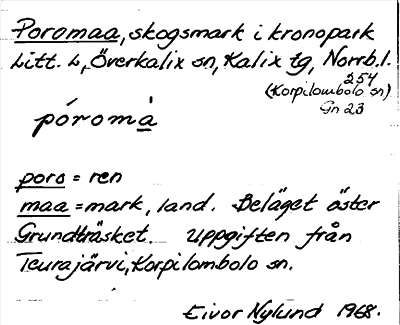 Poromaa, skogsmark i kronopark
Litt. L, Överkalix sn, Kalix tg, Norrb. l.
254
(Korpilombolo sn)
Gn 23
póromà
poro = ren
maa = mark, land. Beläget öster
Grundträsket. Uppgiften från
Teurajärvi, Korpilombolo sn.
Eivor Nylund 1968.